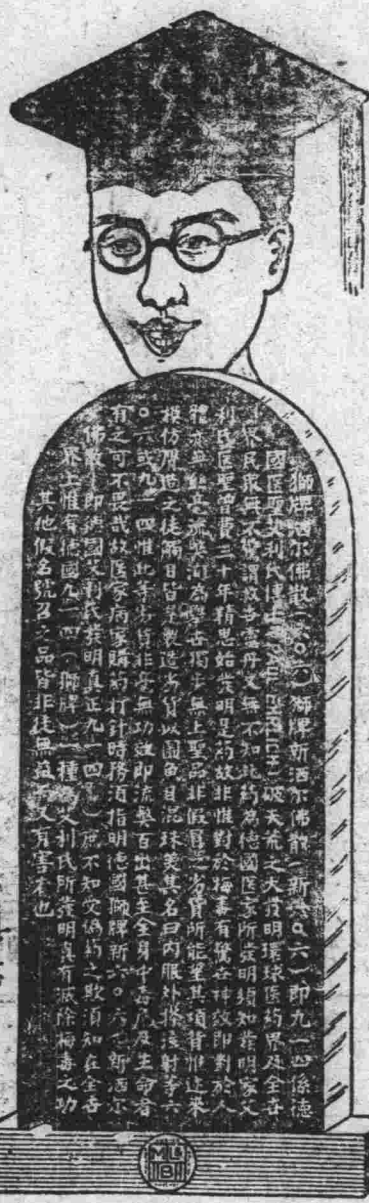 獅牌洒尔佛散(六〇六)獅牌新洒尔佛散(新六〇六)即九一四係德
國医聖艾利氏博士(PAUL EHRLICH)破天荒之大發明環球医药界及全世
界民眾無不驚謂救世霊丹又無不知此药為德國医家所發明須知發明家艾
利氏医聖曾費二十年精思始發明是药故非惟對於梅毒有驚奇神效即對於人
體亦無絲毫流弊洵為舉世獨步無上聖品非假冒之劣貨所能望其項背惟近來
模仿膺造之徒觸目皆是製造劣貨以圖魚目混珠美其名曰内服外搽注射等六
〇六或九一四惟此等劣貨非毫無功效即流弊百出甚至全身中毒危及生命者
有之可不畏哉故医家病家購药打針時務須指明德國獅牌新六〇六(新洒尔
佛散)即德國艾利氏發明真正九一四 庶不知受偽药之欺須知在全世
界上惟有德國九一四(獅牌)一種為艾利氏所發明真有滅除梅毒之功
其他假名號召之品皆非徒無益而又有害者也